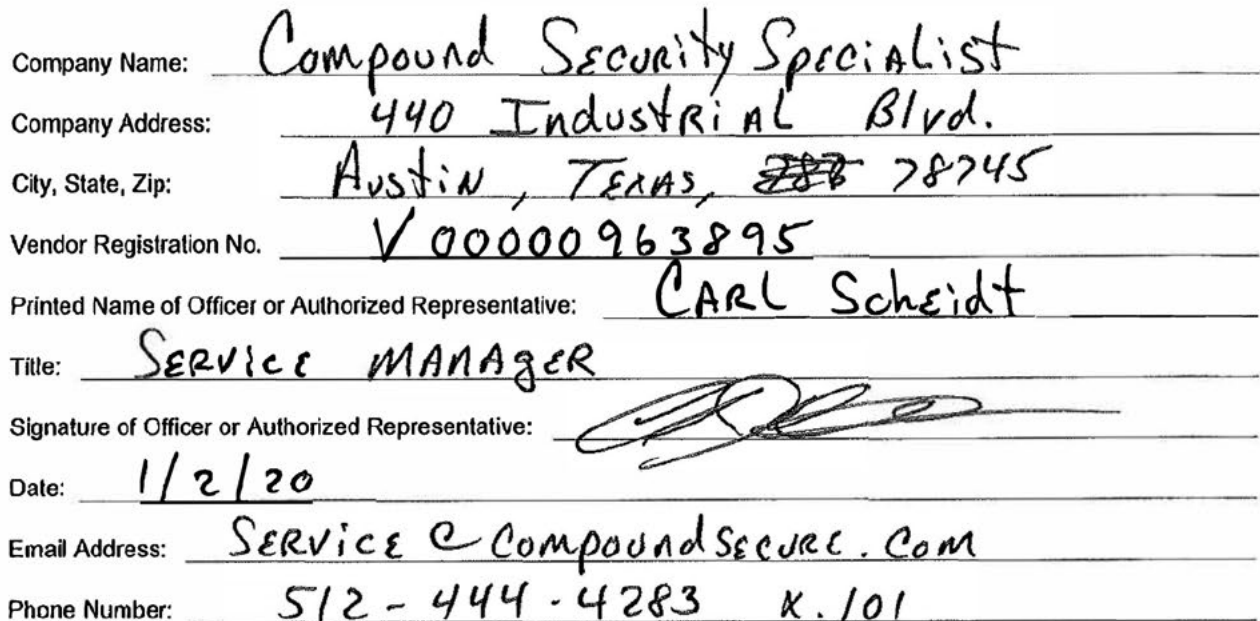 Company Name: Compound Security Specialist
Company Address: 440 Industrial Blvd.
City, State, Zip: Austin, Texas, 78745
Vendor Registration No. V00000963895
Printed Name of Officer or Authorized Representative: Carl Scheidt
Title: Service Manager
Signature of Officer or Authorized Representative:
Date: 1/2/20
Email Address: Service@CompoundSecure.Com
Phone Number: 512-444-4283 x.101